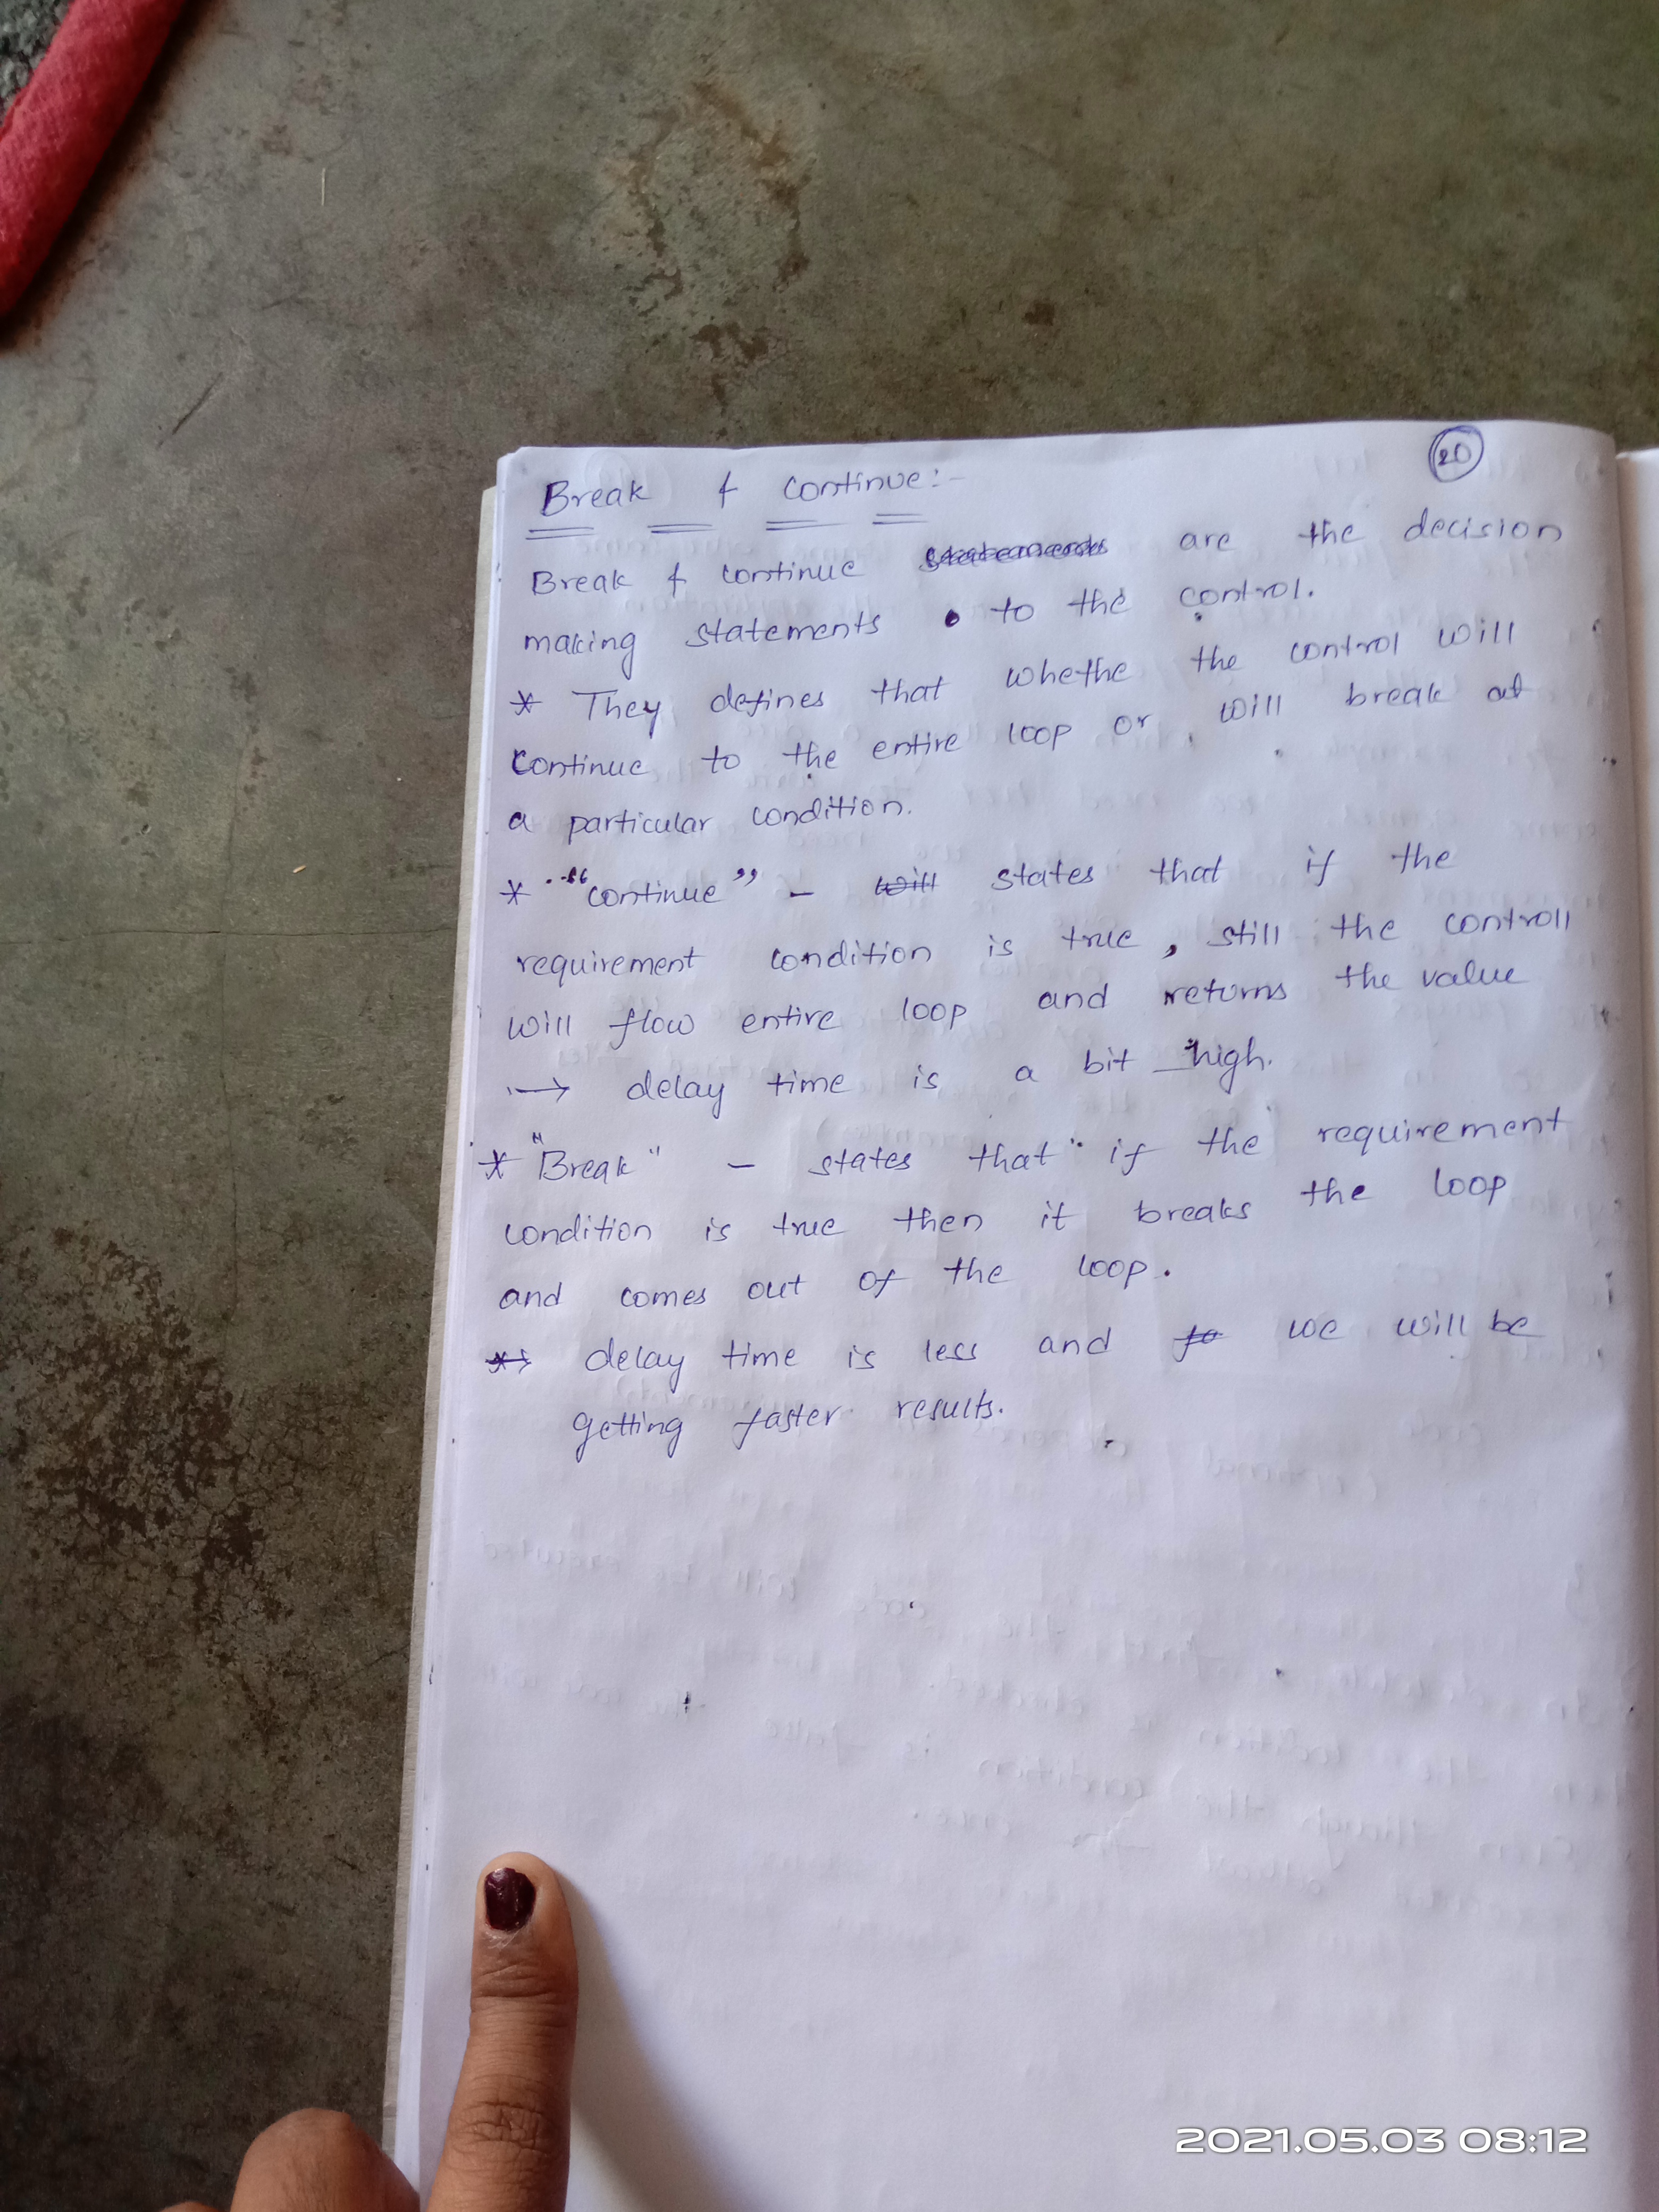 20
Break & continue:-
Break & continue statements are the decision
making statements to the control.
* They defines that whethe the control will
continue to the entire loop or will break at
a particular condition.
* "continue" - will states that if the
requirement condition is true, still the controll
will flow entire loop and returns the value
→ delay time is a bit high.
* "Break" - states that if the requirement
condition is true then it breaks the loop
and comes out of the loop.
* → delay time is less and fo we will be
getting faster results.
2021.05.03 08:12